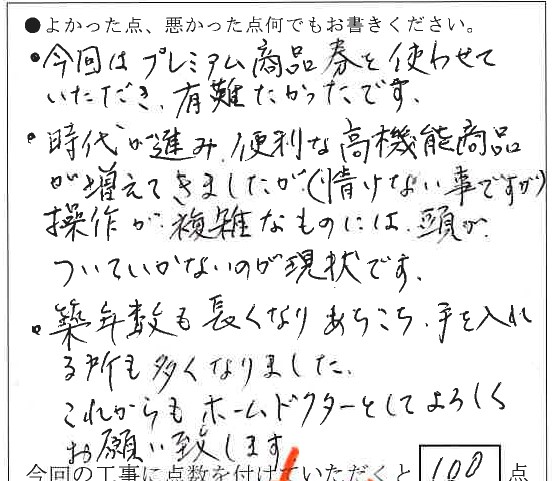 ●よかった点、悪かった点何でもお書きください。
・今回はプレミアム商品券を使わせて
いただき、有難たかったです。
・時代が進み、便利な高機能商品
が増えてきましたが、(情けない事ですが)
操作が複雑なものには、頭が
ついていかないのが現状です。
・築年数も長くなりあちこち、手を入れ
る所も多くなりました。
これからもホームドクターとしてよろしく
お願い致します
今回の工事に点数を付けていただくと 100 点